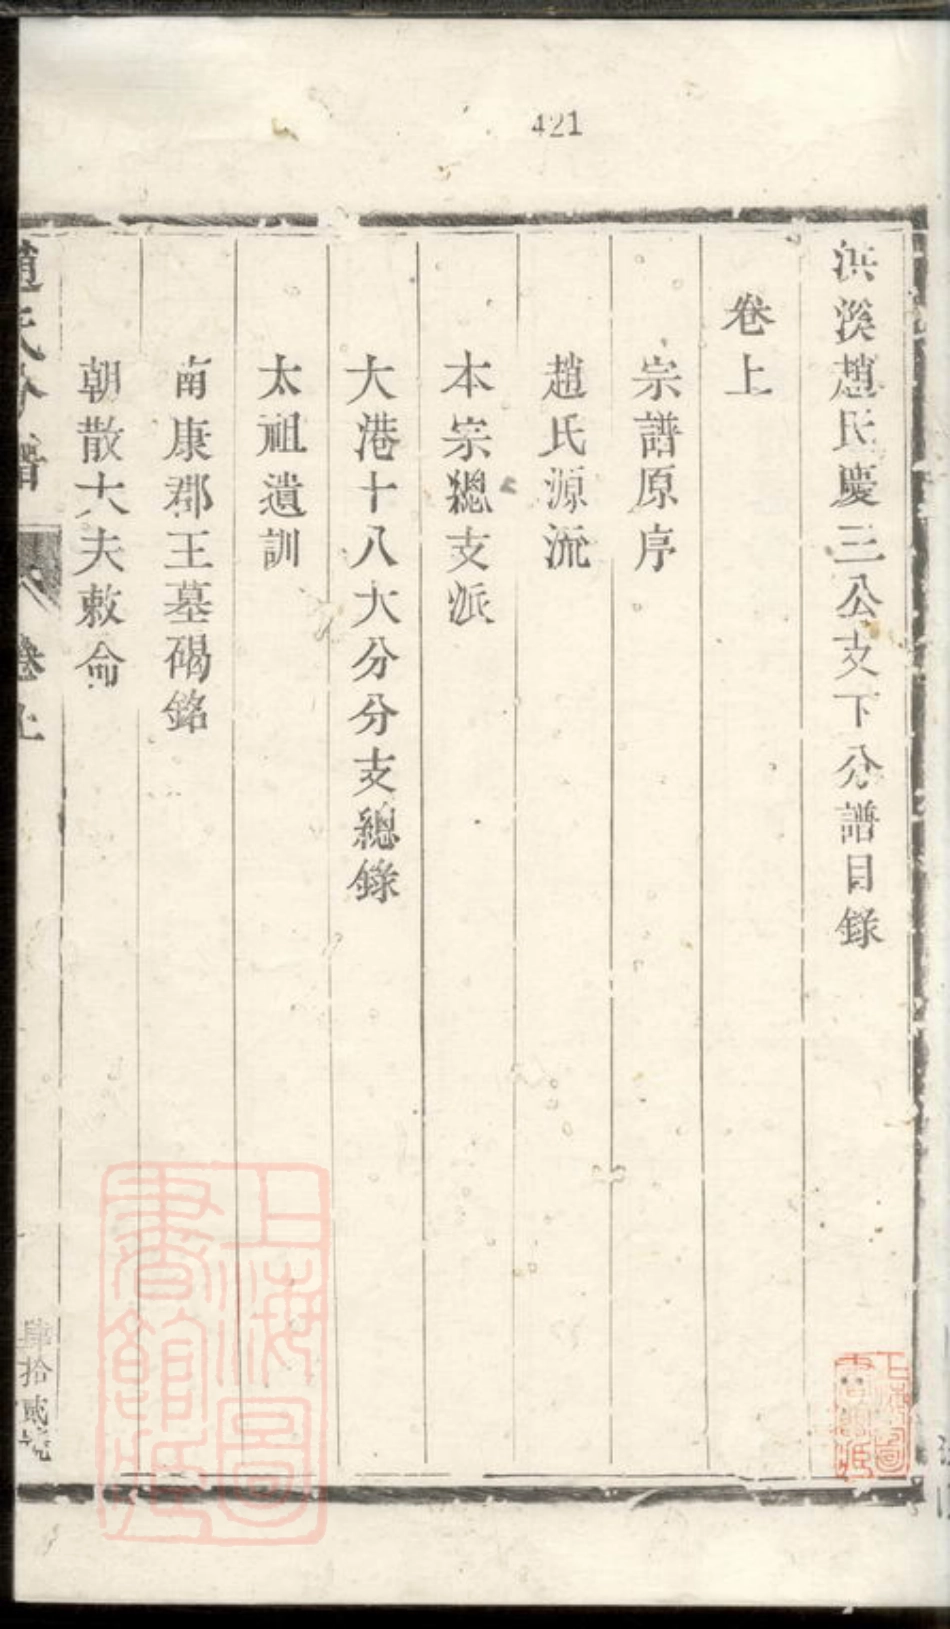 421
洪溪趙氏慶三公支下分譜目錄
卷上
宗譜原序
趙氏源流
本宗總支派
大港十八大分分支總錄
太祖遺訓
南康郡王墓碣銘
朝散大夫敕命
趙氏分譜
卷上
肆拾貳號
上海圖書館藏
上海圖書館藏